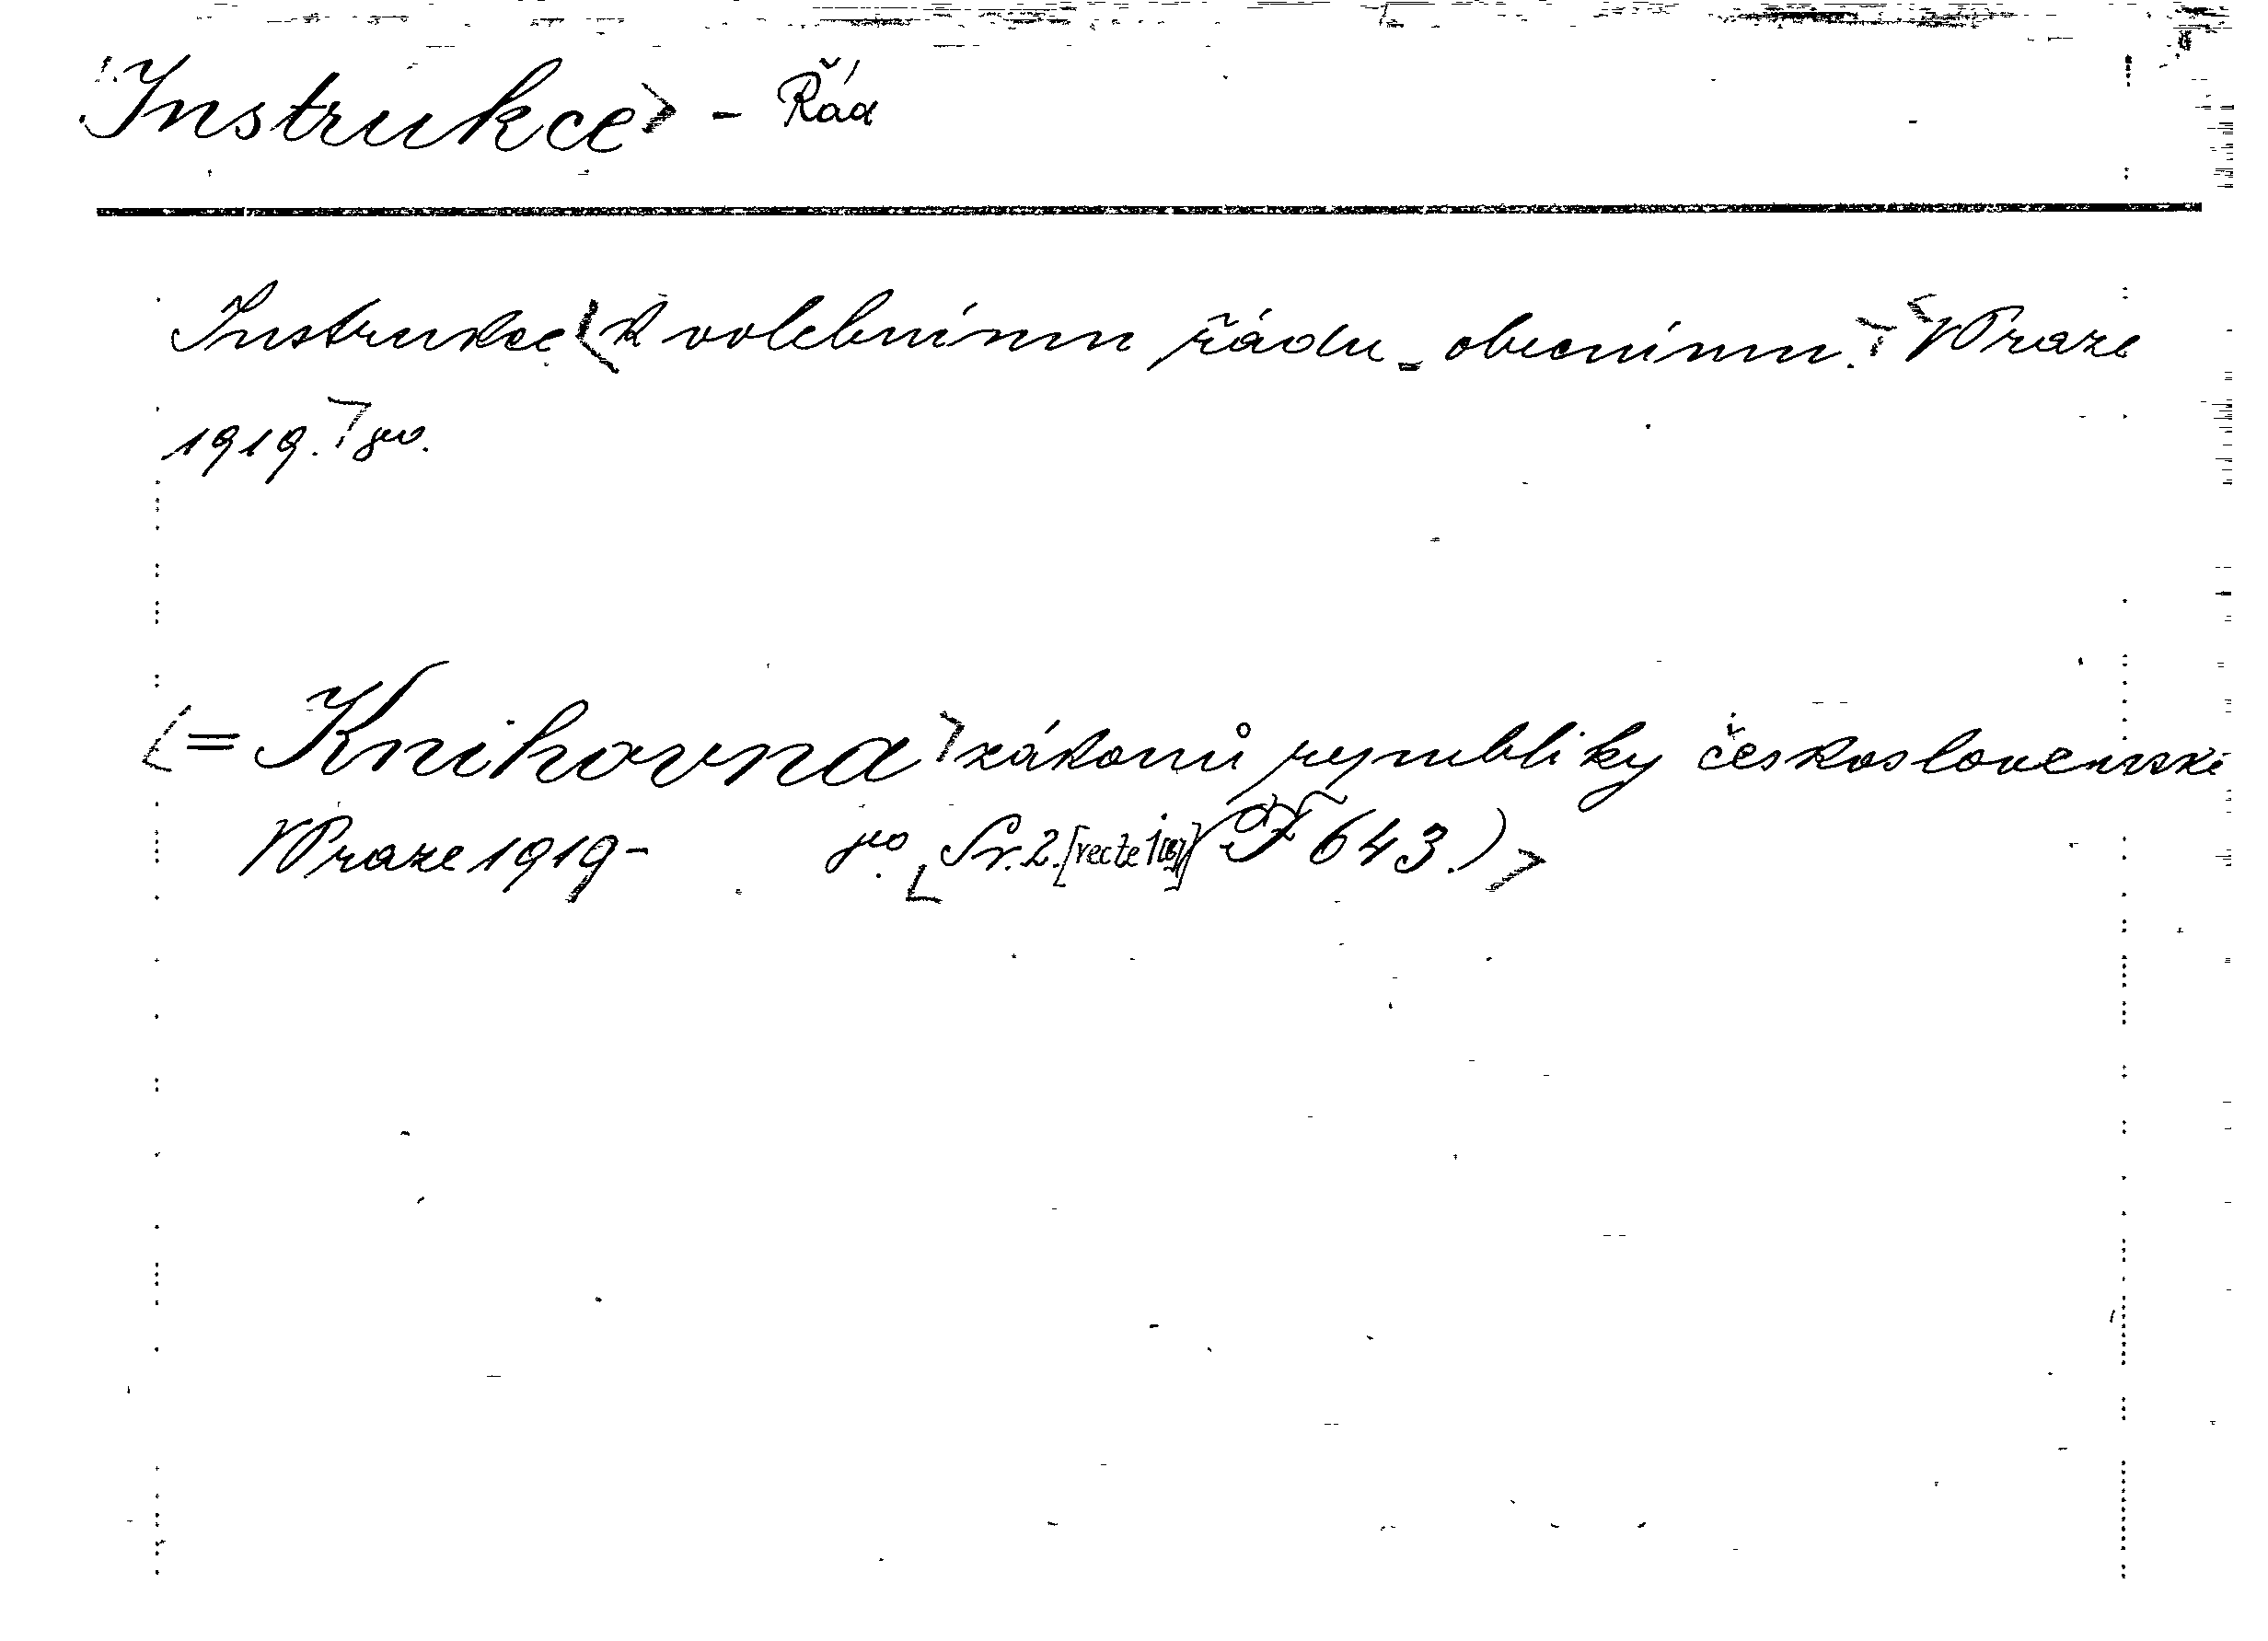 Instrukce - Řád
Instrukce k volebnímu řádu obecnímu. V Praze
1919. 8vo.
= Knihovna zákonů republiky československé
V Praze 1919- 8vo. Sv. 2. [recte (F 643.)